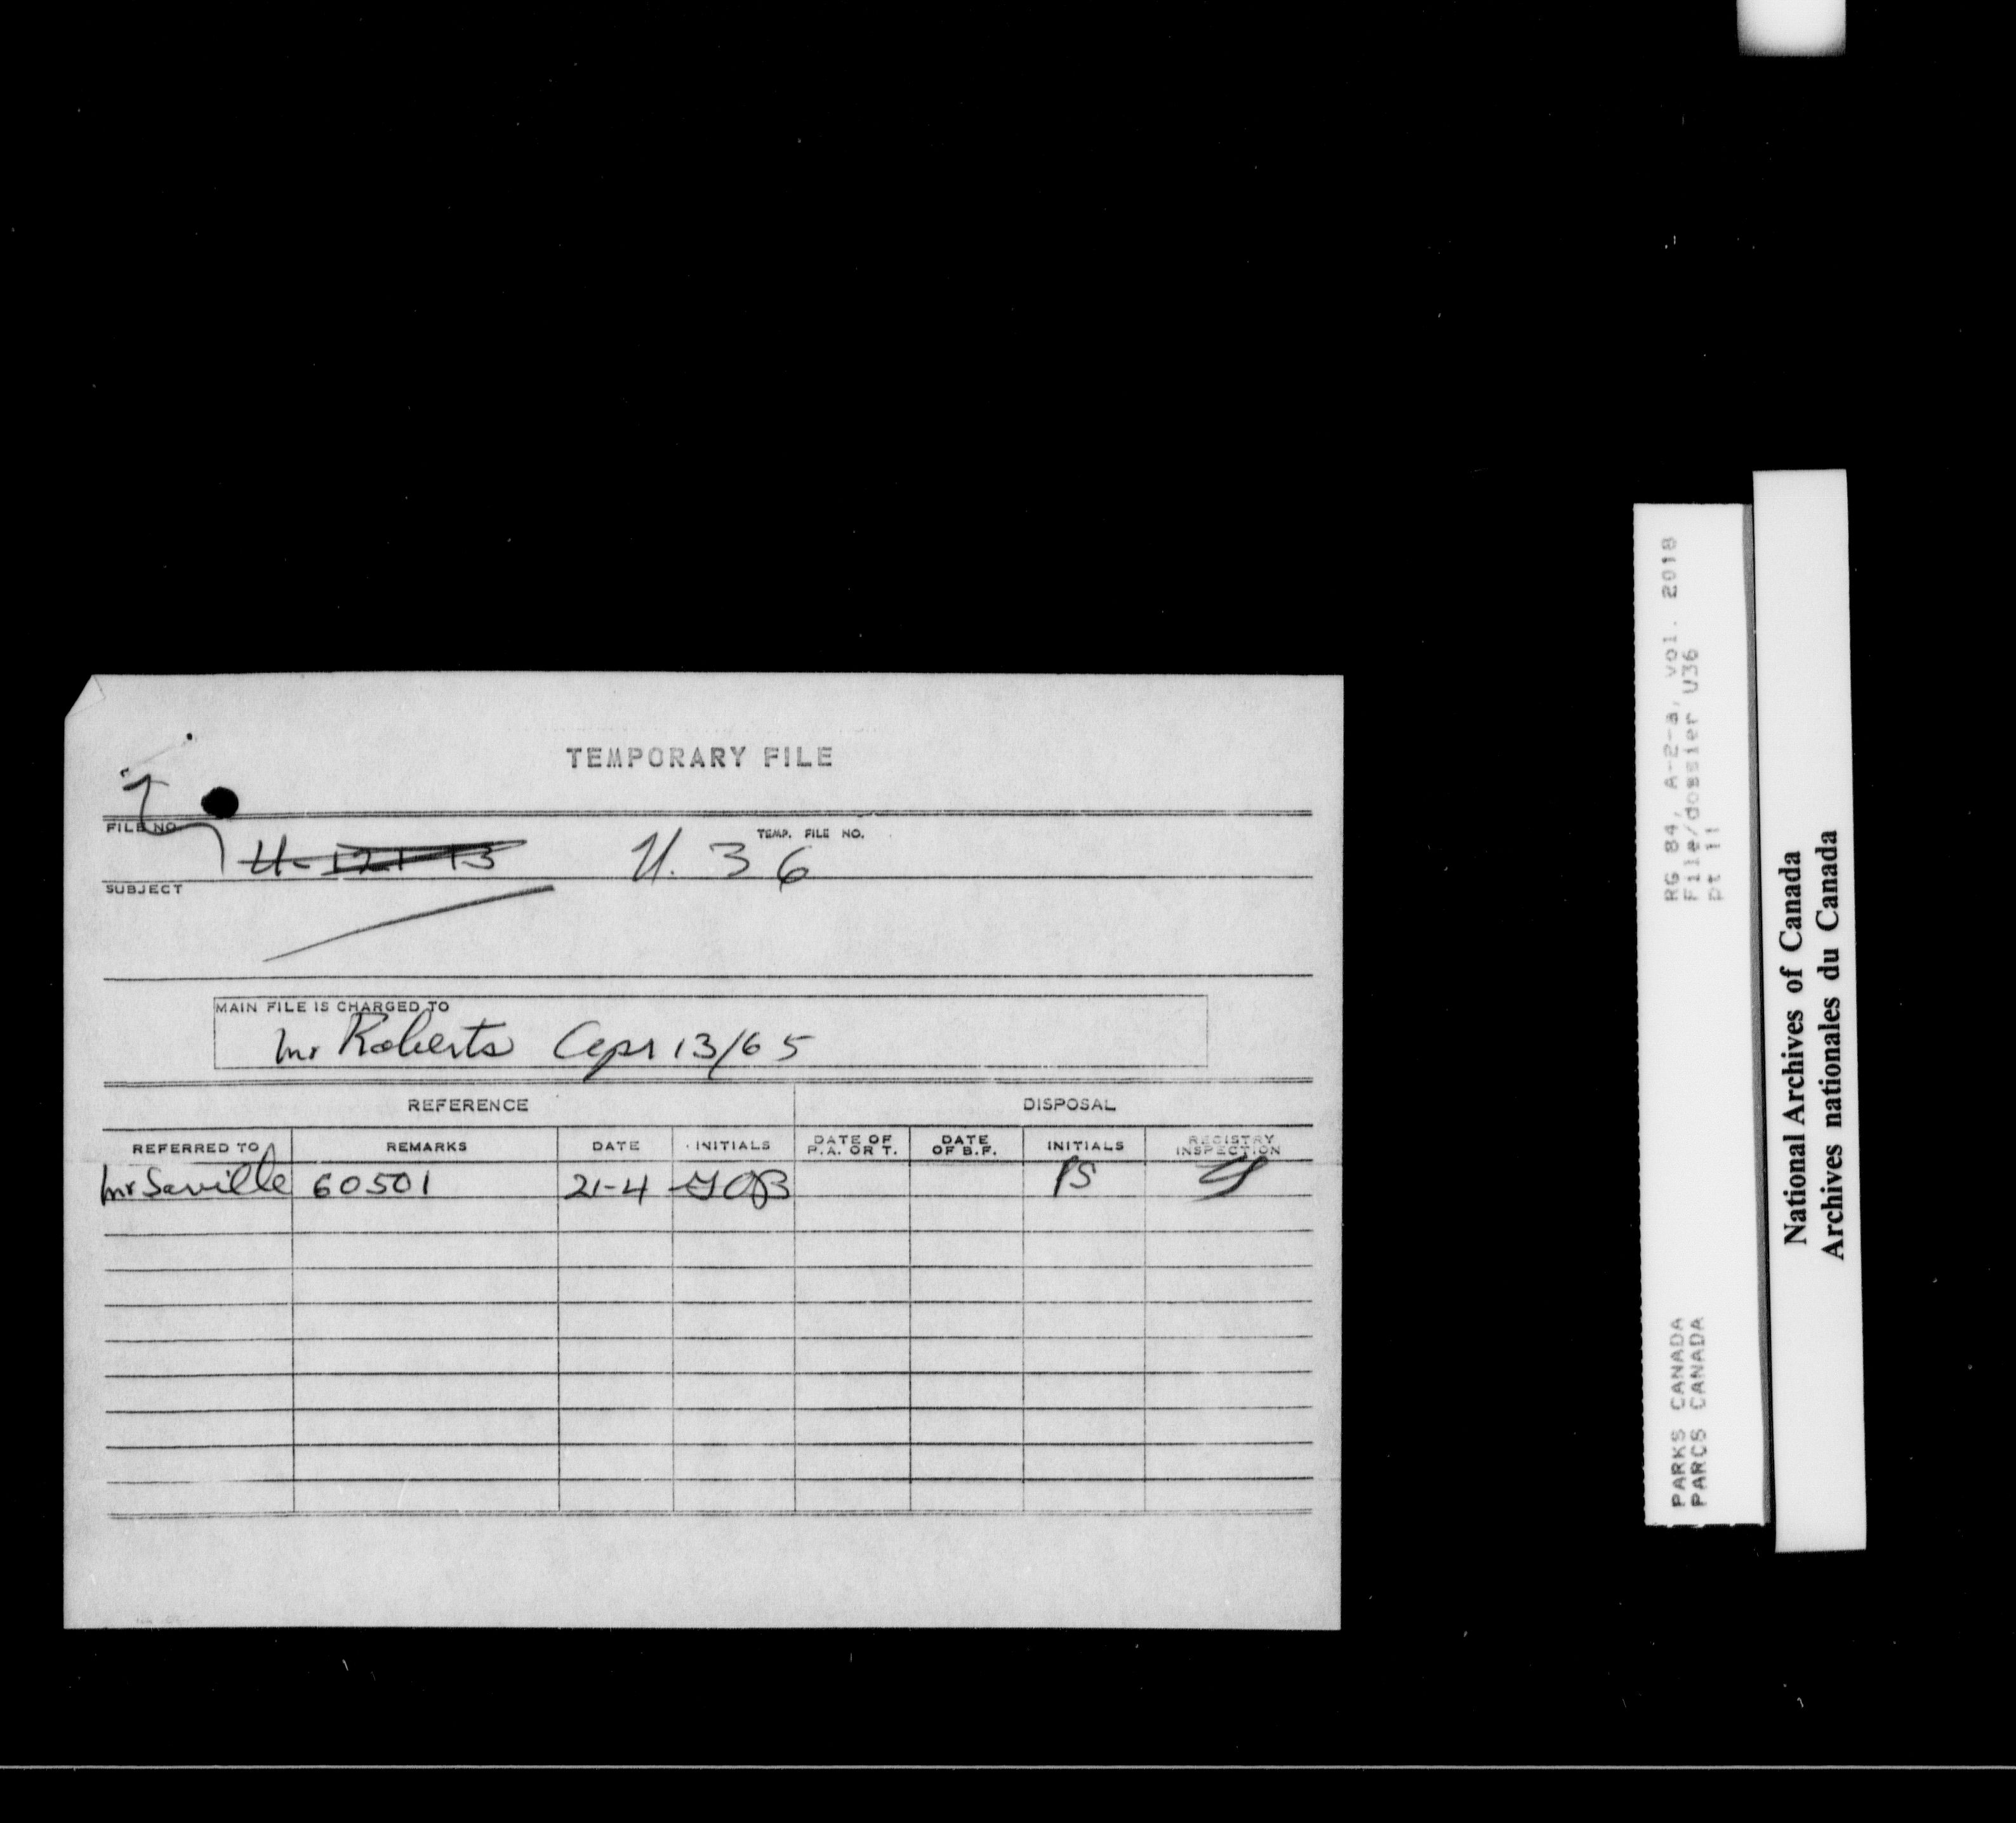 TEMPORARY FILE
FILE NO.
TEMP. FILE NO.
U. 36
SUBJECT
MAIN FILE IS CHARGED TO
Mr Roberts Apr 13/65
REFERENCE DISPOSAL
REFERRED TO REMARKS DATE INITIALS DATE OF P.A. OR T. DATE OF B.F. INITIALS REGISTRY INSPECTION
Mr Saville 60501 21-4 PS
RG 84, A-2-a, vol. 2018
File/dossier U36
pt 11
PARKS CANADA
PARCS CANADA
National Archives of Canada
Archives nationales du Canada